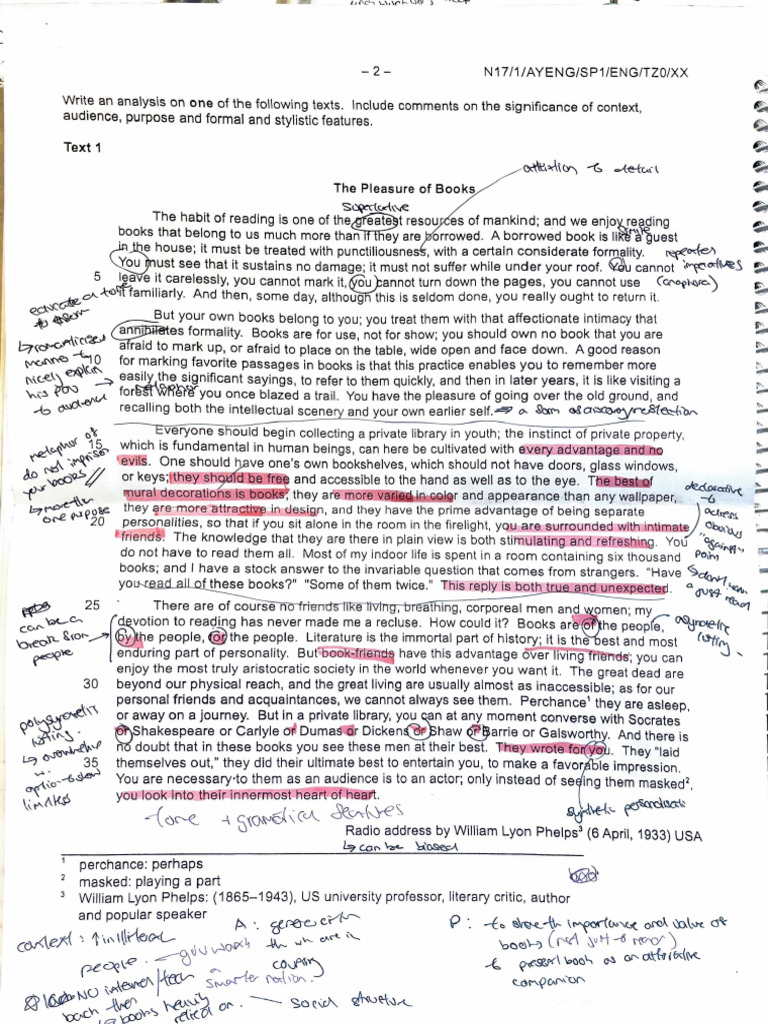 – 2 –
N17/1/AYENG/SP1/ENG/TZ0/XX
Write an analysis on one of the following texts. Include comments on the significance of context,
audience, purpose and formal and stylistic features.
Text 1
attention to detail
The Pleasure of Books
superlative
The habit of reading is one of the greatest resources of mankind; and we enjoy reading
books that belong to us much more than if they are borrowed. A borrowed book is like a guest
simile
in the house; it must be treated with punctiliousness, with a certain considerate formality.
repeates
You must see that it sustains no damage; it must not suffer while under your roof. You cannot
imperatives
5 leave it carelessly, you cannot mark it, you cannot turn down the pages, you cannot use
(anaphora)
it familiarly. And then, some day, although this is seldom done, you really ought to return it.
But your own books belong to you; you treat them with that affectionate intimacy that
annihilates formality. Books are for use, not for show; you should own no book that you are
afraid to mark up, or afraid to place on the table, wide open and face down. A good reason
10 for marking favorite passages in books is that this practice enables you to remember more
easily the significant sayings, to refer to them quickly, and then in later years, it is like visiting a
metaphor
forest where you once blazed a trail. You have the pleasure of going over the old ground, and
recalling both the intellectual scenery and your own earlier self.
romanticised
manner to
nicely explain
his POV
to audience
Everyone should begin collecting a private library in youth; the instinct of private property,
15 which is fundamental in human beings, can here be cultivated with every advantage and no
evils. One should have one's own bookshelves, which should not have doors, glass windows,
or keys; they should be free and accessible to the hand as well as to the eye. The best of
mural decorations is books; they are more varied in color and appearance than any wallpaper,
they are more attractive in design, and they have the prime advantage of being separate
20 personalities, so that if you sit alone in the room in the firelight, you are surrounded with intimate
friends. The knowledge that they are there in plain view is both stimulating and refreshing. You
do not have to read them all. Most of my indoor life is spent in a room containing six thousand
books; and I have a stock answer to the invariable question that comes from strangers. "Have
you read all of these books?" "Some of them twice." This reply is both true and unexpected.
metaphor of
do not imprison
your books
more than
one purpose
point
25 There are of course no friends like living, breathing, corporeal men and women; my
devotion to reading has never made me a recluse. How could it? Books are of the people,
by the people, for the people. Literature is the immortal part of history; it is the best and most
enduring part of personality. But book-friends have this advantage over living friends; you can
enjoy the most truly aristocratic society in the world whenever you want it. The great dead are
30 beyond our physical reach, and the great living are usually almost as inaccessible; as for our
personal friends and acquaintances, we cannot always see them. Perchance1 they are asleep,
or away on a journey. But in a private library, you can at any moment converse with Socrates
or Shakespeare or Carlyle or Dumas or Dickens or Shaw or Barrie or Galsworthy. And there is
no doubt that in these books you see these men at their best. They wrote for you. They "laid
35 themselves out," they did their ultimate best to entertain you, to make a favorable impression.
You are necessary to them as an audience is to an actor; only instead of seeing them masked2,
you look into their innermost heart of heart.
can be a
break from
people
listing
limitless
synthetic personalisation
tone + gramatical features
Radio address by William Lyon Phelps3 (6 April, 1933) USA
can be biased
1 perchance: perhaps
2 masked: playing a part
3 William Lyon Phelps: (1865–1943), US university professor, literary critic, author
and popular speaker
context:
people.
NO internet/tech
back then
books heavily
relied on.
smarter nation.
social structure
A:
country
P: to show th importance and value of
books (not just to read)
to present book as an attractive
companion